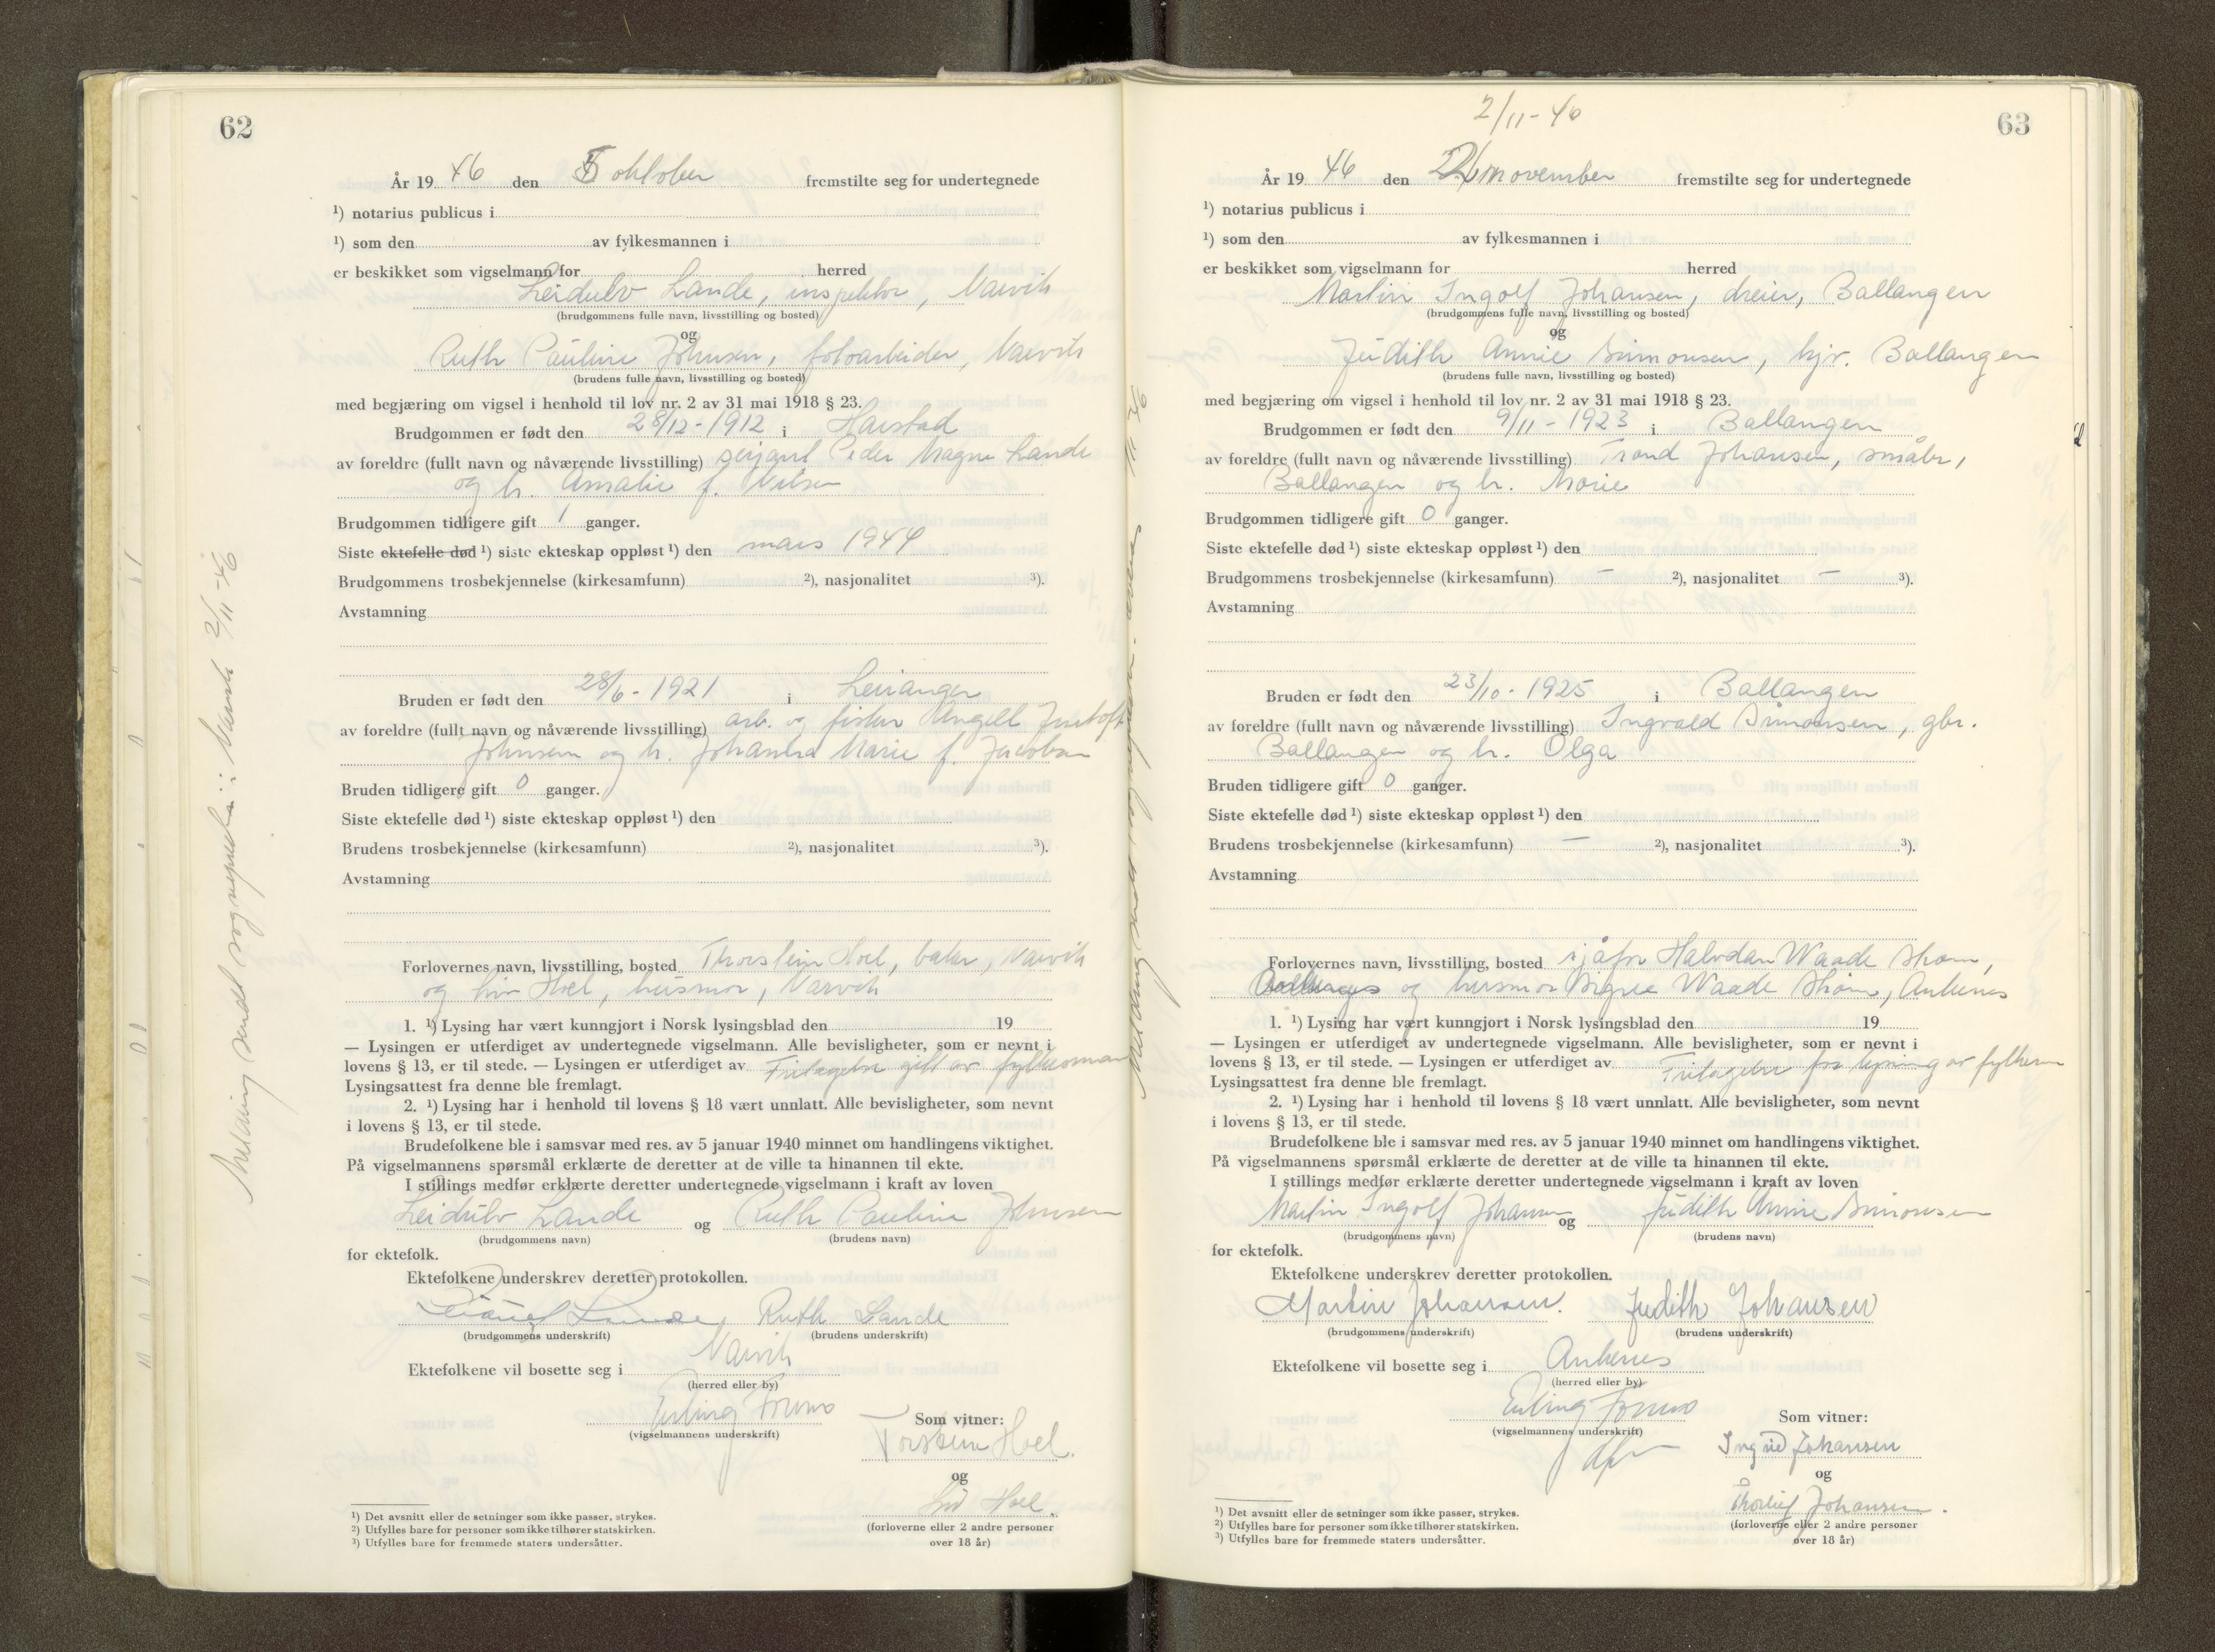 62
År 19 46 den 5 oktober fremstilte seg for undertegnede
¹) notarius publicus i
¹) som den av fylkesmannen i
er beskikket som vigselmann for herred
Leidulv Lande, inspektør, Narvik
(brudgommens fulle navn, livsstilling og bosted)
og
Ruth Pauline Johnsen, fotoarbeider, Narvik
(brudens fulle navn, livsstilling og bosted)
med begjæring om vigsel i henhold til lov nr. 2 av 31 mai 1918 § 23.
Brudgommen er født den 28/12-1912 i Harstad
av foreldre (fullt navn og nåværende livsstilling) serjant Peder Magne Lande
og h. Amalie f. Nilsen
Brudgommen tidligere gift 1 ganger.
Siste ektefelle død ¹) siste ekteskap oppløst ¹) den mars 1944
Brudgommens trosbekjennelse (kirkesamfunn) ²), nasjonalitet ³).
Avstamning
Bruden er født den 28/6-1921 i Leiranger
av foreldre (fullt navn og nåværende livsstilling) arb. og fisker Angell Justoft
Johnsen og h. Johanna Marie f. Jacobsen
Bruden tidligere gift 0 ganger.
Siste ektefelle død ¹) siste ekteskap oppløst ¹) den
Brudens trosbekjennelse (kirkesamfunn) ²), nasjonalitet ³).
Avstamning
Forlovernes navn, livsstilling, bosted Thorstein Hoel, baker, Narvik
og fru Hoel, husmor, Narvik
1. ¹) Lysing har vært kunngjort i Norsk lysingsblad den 19
— Lysingen er utferdiget av undertegnede vigselmann. Alle bevisligheter, som er nevnt i
lovens § 13, er til stede. — Lysingen er utferdiget av Fritagelse gitt av fylkesman
Lysingsattest fra denne ble fremlagt.
2. ¹) Lysing har i henhold til lovens § 18 vært unnlatt. Alle bevisligheter, som nevnt
i lovens § 13, er til stede.
Brudefolkene ble i samsvar med res. av 5 januar 1940 minnet om handlingens viktighet.
På vigselmannens spørsmål erklærte de deretter at de ville ta hinannen til ekte.
I stillings medfør erklærte deretter undertegnede vigselmann i kraft av loven
Leidulv Lande og Ruth Pauline Johnsen
(brudgommens navn) (brudens navn)
for ektefolk.
Ektefolkene underskrev deretter protokollen.
Lande Ruth Lande
(brudgommens underskrift) (brudens underskrift)
Ektefolkene vil bosette seg i Narvik
(herred eller by)
Erling
(vigselmannens underskrift)
Som vitner:
Torstein Hoel.
og
Hoel.
(forloverne eller 2 andre personer
over 18 år)
¹) Det avsnitt eller de setninger som ikke passer, strykes.
²) Utfylles bare for personer som ikke tilhører statskirken.
³) Utfylles bare for fremmede staters undersåtter.
Melding sendt sognepresten i Narvik 2/11-46
2/11-46
63
År 19 46 den 2 november fremstilte seg for undertegnede
¹) notarius publicus i
¹) som den av fylkesmannen i
er beskikket som vigselmann for herred
Martin Ingolf Johansen, dreier, Ballangen
(brudgommens fulle navn, livsstilling og bosted)
og
Judith Annie Simonsen, hjv. Ballangen
(brudens fulle navn, livsstilling og bosted)
med begjæring om vigsel i henhold til lov nr. 2 av 31 mai 1918 § 23.
Brudgommen er født den 9/11-1923 i Ballangen
av foreldre (fullt navn og nåværende livsstilling) Trond Johansen, småbr,
Ballangen og h. Marie
Brudgommen tidligere gift 0 ganger.
Siste ektefelle død ¹) siste ekteskap oppløst ¹) den
Brudgommens trosbekjennelse (kirkesamfunn) — ²), nasjonalitet — ³).
Avstamning
Bruden er født den 23/10-1925 i Ballangen
av foreldre (fullt navn og nåværende livsstilling) Ingvald Simonsen, gbr.
Ballangen og h. Olga
Bruden tidligere gift 0 ganger.
Siste ektefelle død ¹) siste ekteskap oppløst ¹) den
Brudens trosbekjennelse (kirkesamfunn) — ²), nasjonalitet ³).
Avstamning
Forlovernes navn, livsstilling, bosted sjåfør Halvdan Waade Skom,
og husmor Signe Waade Skom, Ankenes
1. ¹) Lysing har vært kunngjort i Norsk lysingsblad den 19
— Lysingen er utferdiget av undertegnede vigselmann. Alle bevisligheter, som er nevnt i
lovens § 13, er til stede. — Lysingen er utferdiget av Fritagelse for lysing av fylkesm
Lysingsattest fra denne ble fremlagt.
2. ¹) Lysing har i henhold til lovens § 18 vært unnlatt. Alle bevisligheter, som nevnt
i lovens § 13, er til stede.
Brudefolkene ble i samsvar med res. av 5 januar 1940 minnet om handlingens viktighet.
På vigselmannens spørsmål erklærte de deretter at de ville ta hinannen til ekte.
I stillings medfør erklærte deretter undertegnede vigselmann i kraft av loven
Martin Ingolf Johansen og Judith Annie Simonsen
(brudgommens navn) (brudens navn)
for ektefolk.
Ektefolkene underskrev deretter protokollen.
Martin Johansen. Judith Johansen
(brudgommens underskrift) (brudens underskrift)
Ektefolkene vil bosette seg i Ankenes
(herred eller by)
Erling
(vigselmannens underskrift)
Som vitner:
Ingrid Johansen
og
Thorleif Johansen.
(forloverne eller 2 andre personer
over 18 år)
¹) Det avsnitt eller de setninger som ikke passer, strykes.
²) Utfylles bare for personer som ikke tilhører statskirken.
³) Utfylles bare for fremmede staters undersåtter.
Melding sendt sognepresten i Ankenes